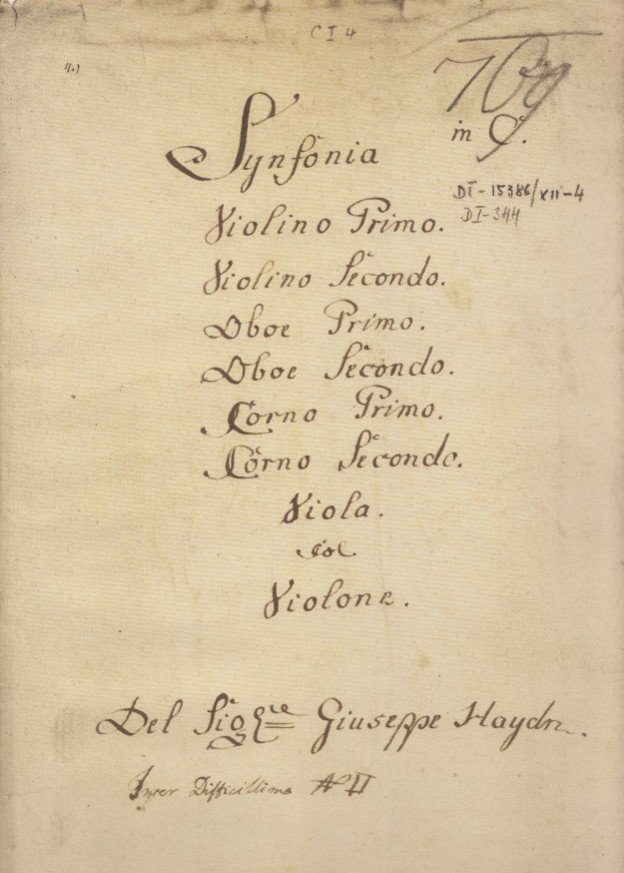 C I 4
4.)
in C.
Synfonia
DI-15386/XII-4
DI-344
Violino Primo.
Violino Secondo.
Oboe Primo.
Oboe Secondo.
Corno Primo.
Corno Secondo.
Viola.
col
Violone.
Del Sigre Giuseppe Haydn.
Inter Difficillima No II